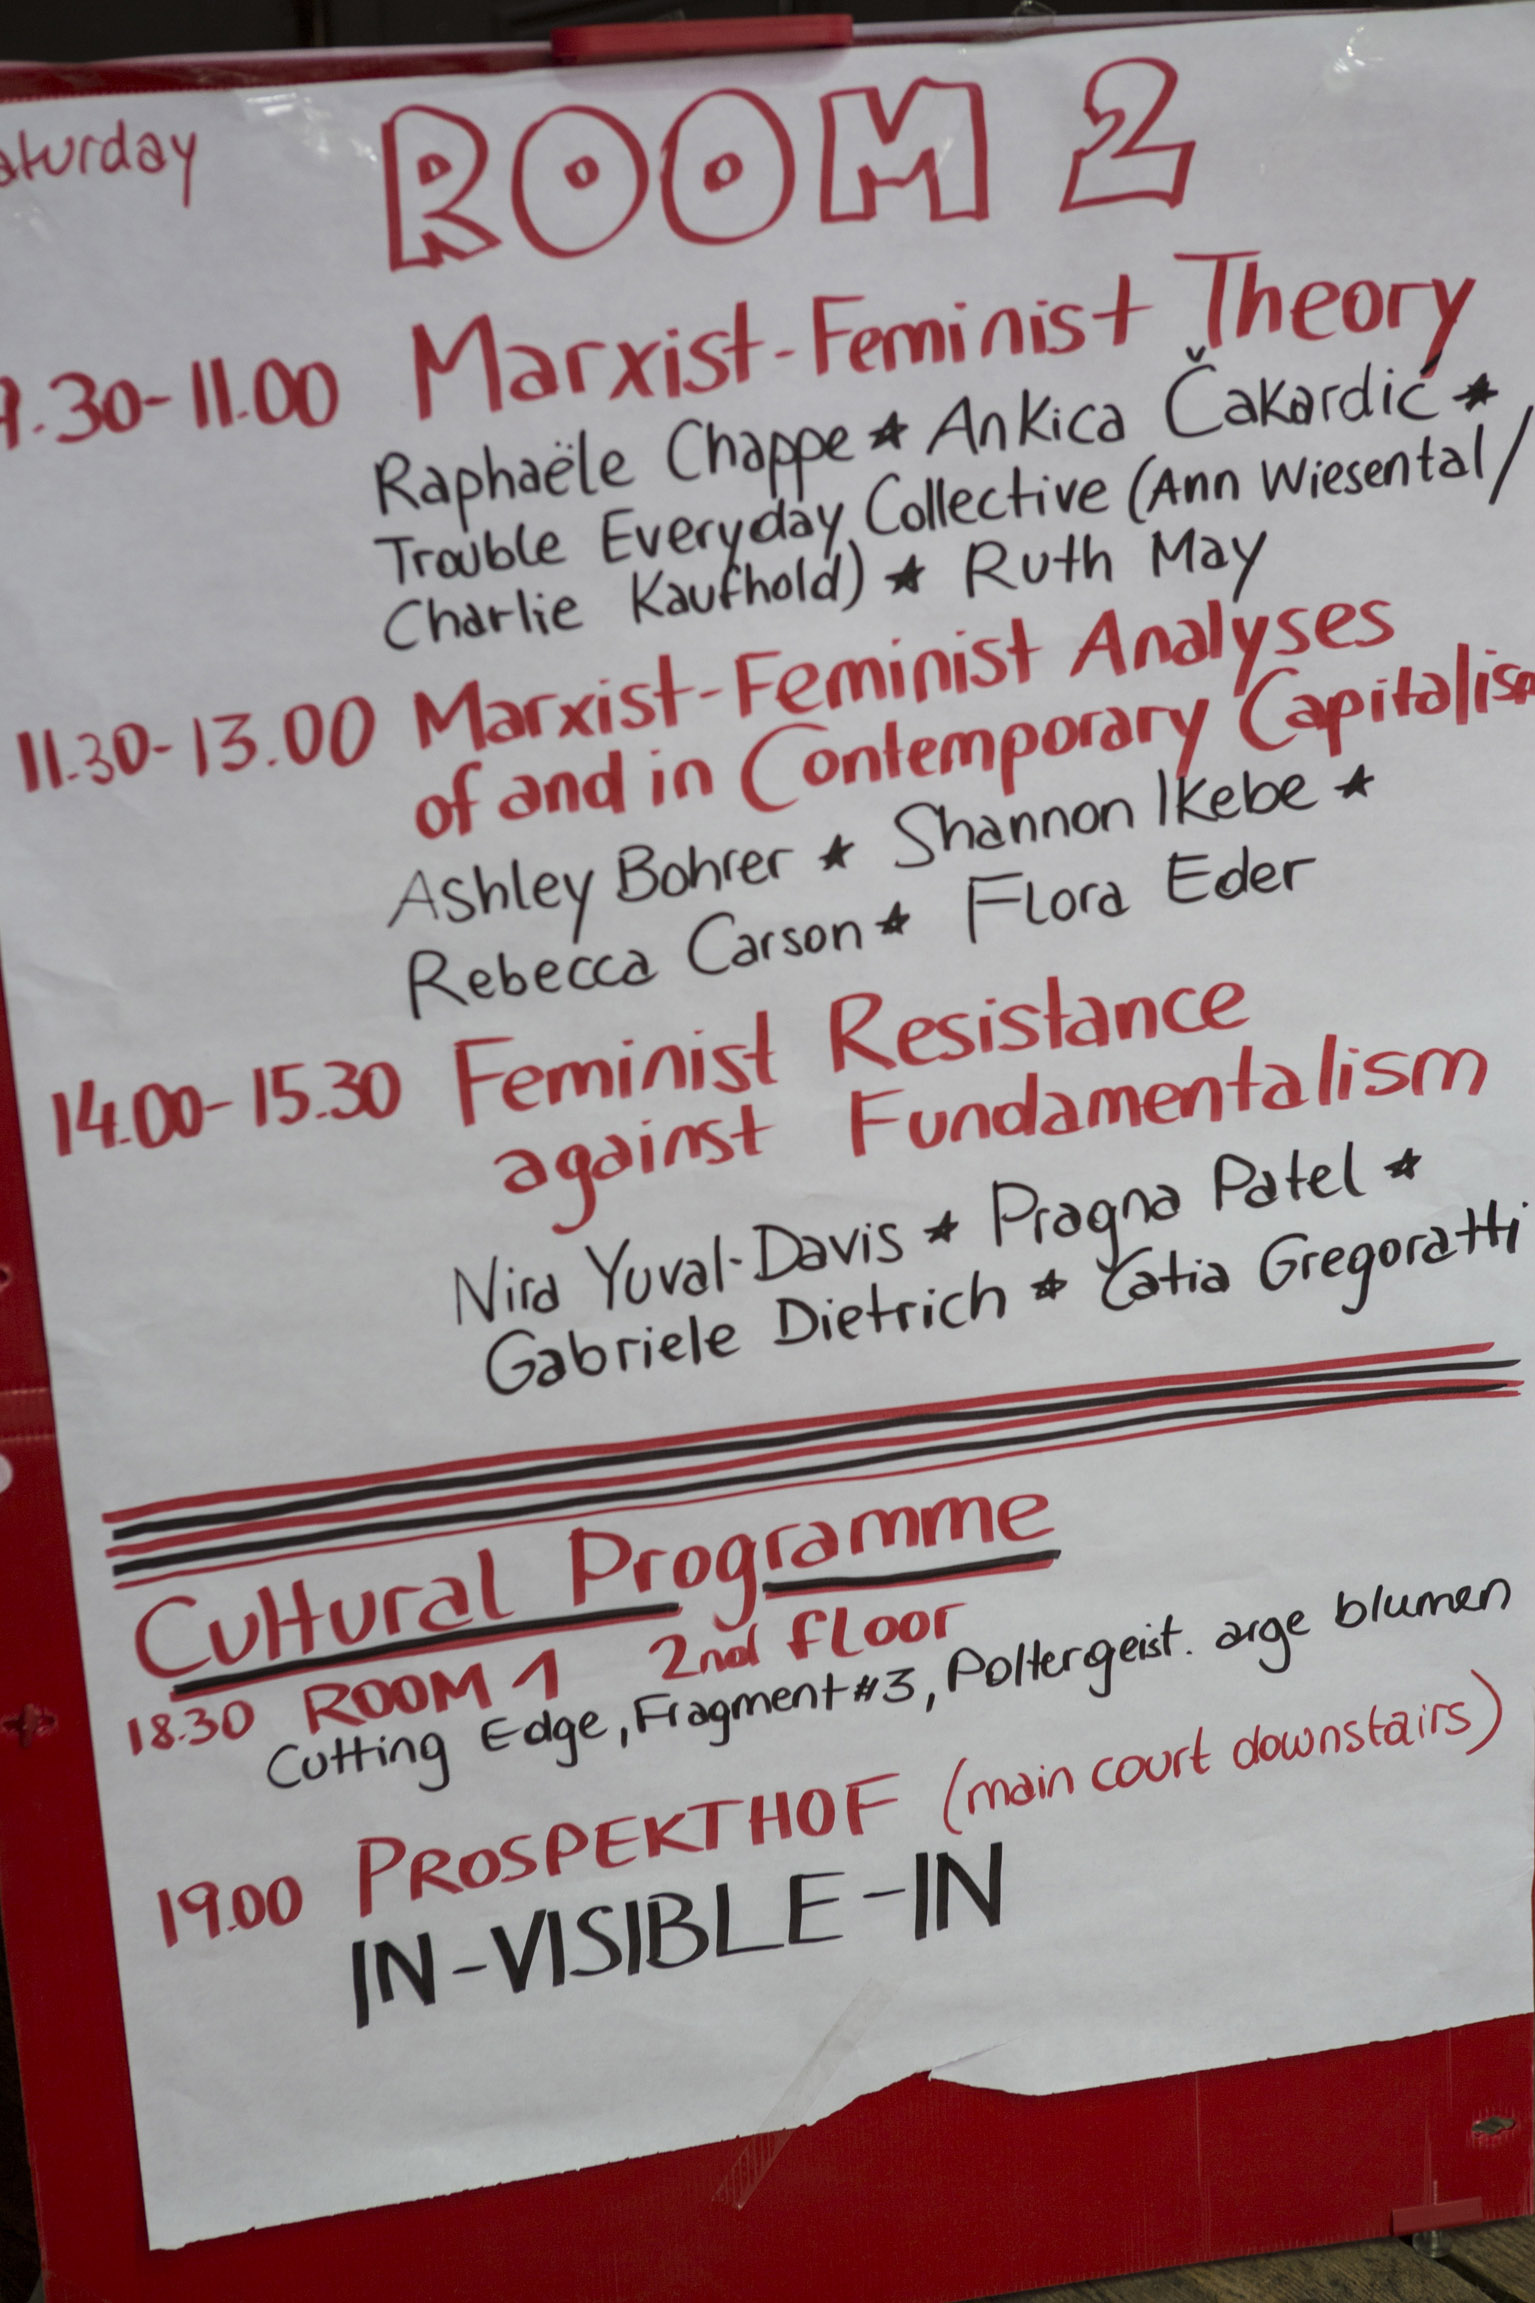 aturday
ROOM 2
9.30-11.00 Marxist-Feminist Theory
Raphaële Chappe ★ Ankica Čakardić ★
Trouble Everyday Collective (Ann Wiesental/
Charlie Kaufhold) ★ Ruth May
11.30-13.00 Marxist-Feminist Analyses
of and in Contemporary Capitalism
Ashley Bohrer ★ Shannon Ikebe ★
Rebecca Carson ★ Flora Eder
14.00-15.30 Feminist Resistance
against Fundamentalism
Nira Yuval-Davis ★ Pragna Patel ★
Gabriele Dietrich ★ Catia Gregoratti
Cultural Programme
18.30 ROOM 1 2nd floor
Cutting Edge, Fragment #3, Poltergeist. arge blumen
19.00 PROSPEKTHOF (main court downstairs)
IN-VISIBLE-IN